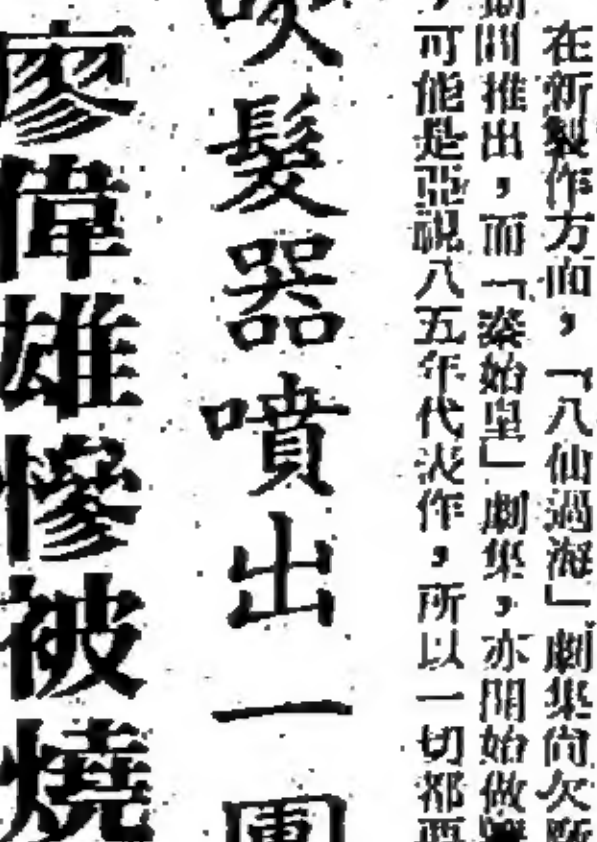 在新製作方面，「八仙過海」劇集尚欠
劇開推出，而「秦始皇」劇集，亦開始做
，可能是亞視八五年代表作，所以一切都要
吹髮器噴出一團
廖偉雄慘被燒